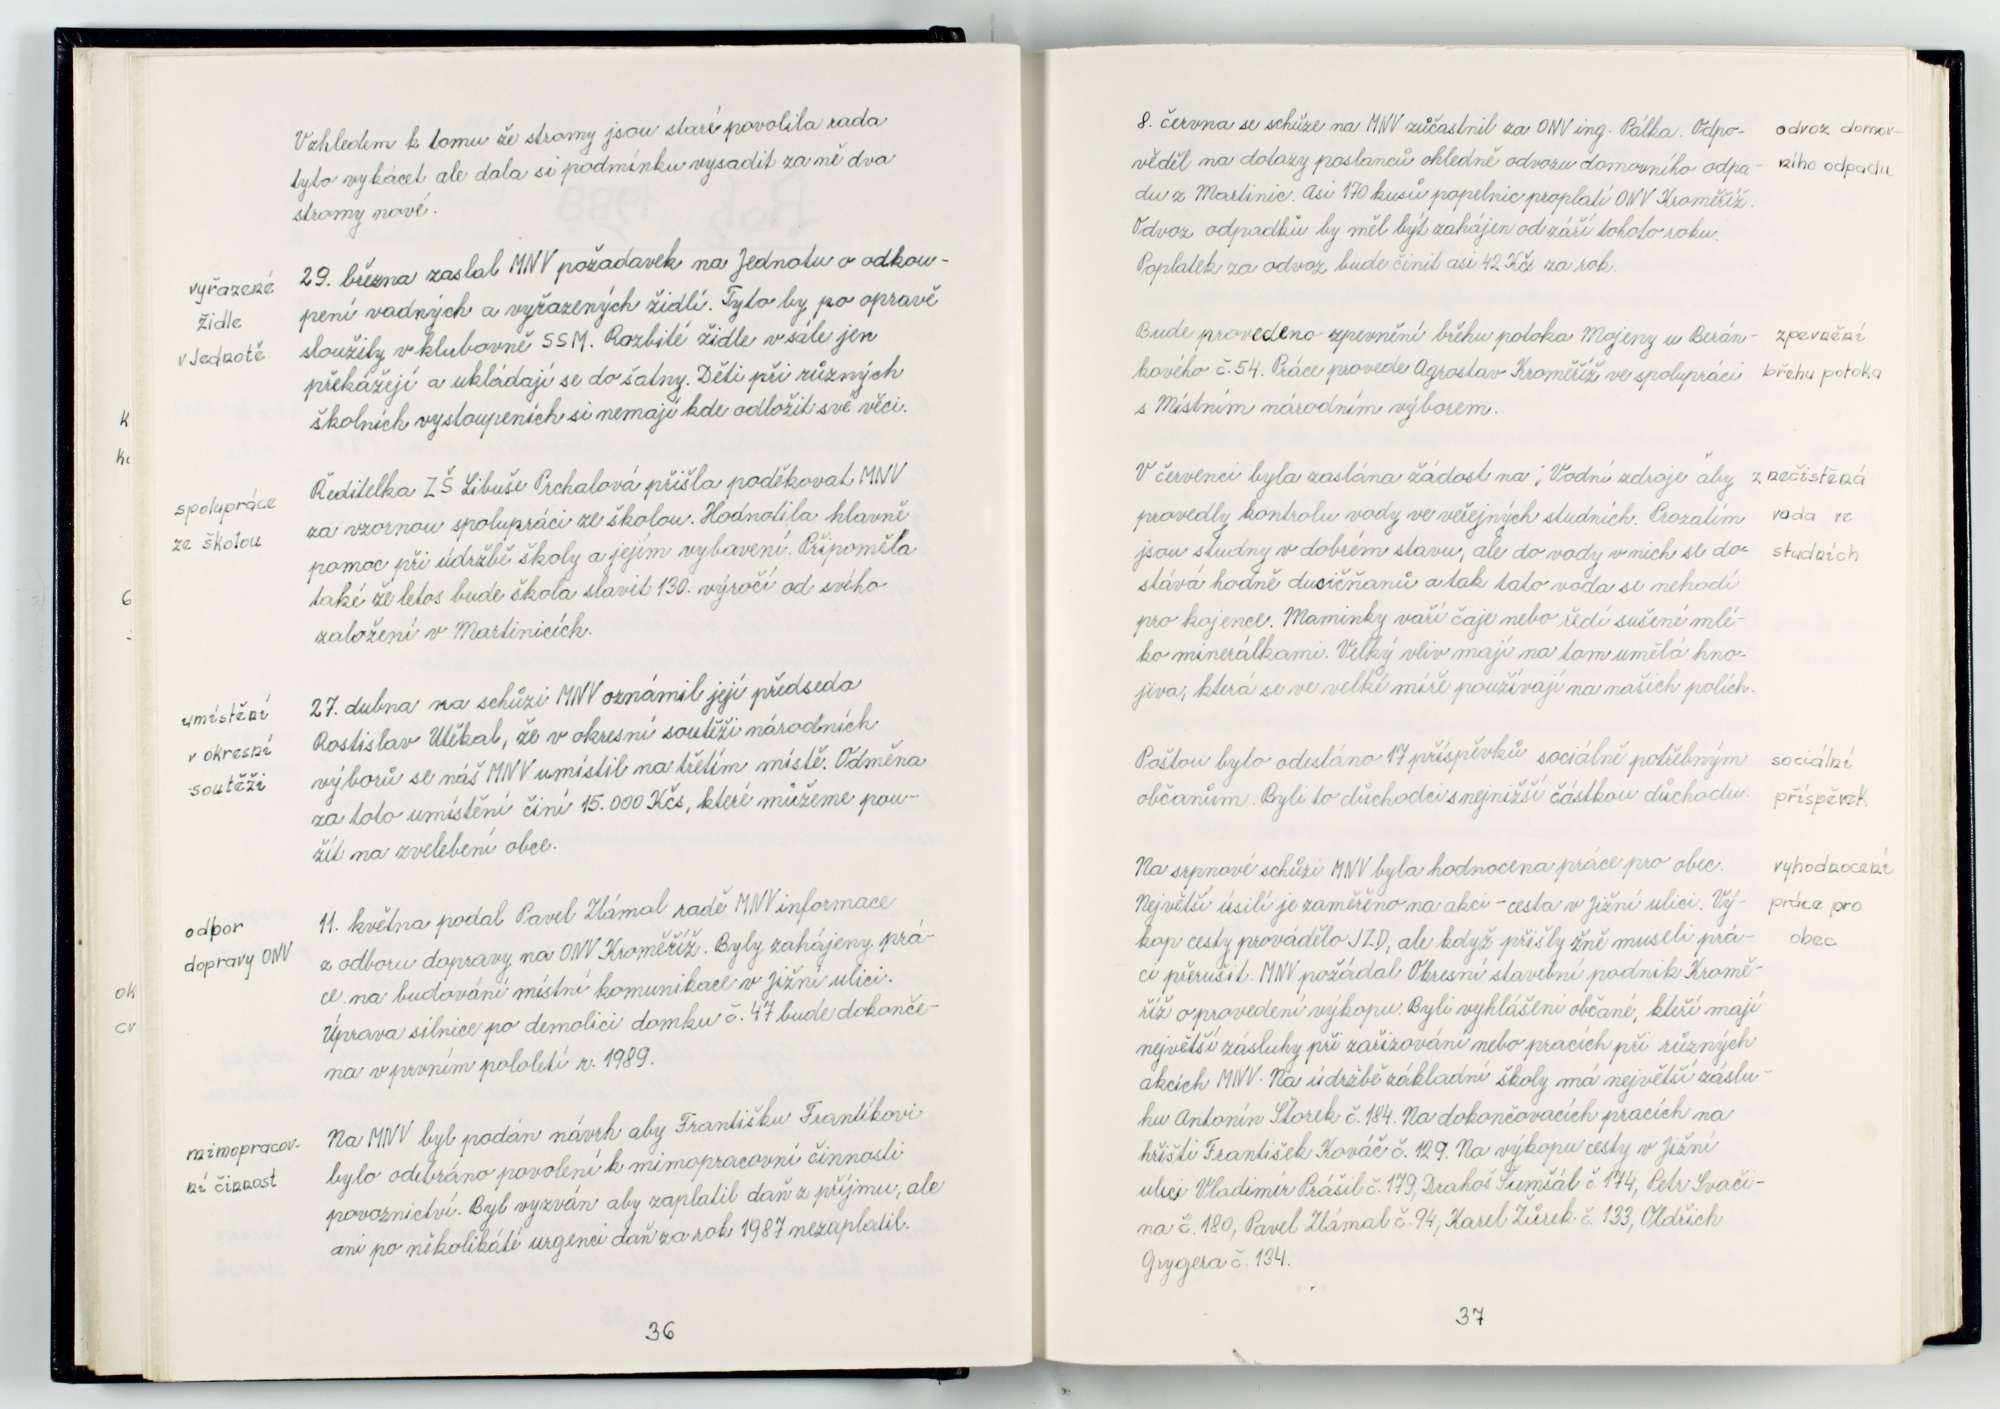 Vzhledem k tomu že stromy jsou staré povolila rada
tyto vykácet ale dala si podmínku vysadit za ně dva
stromy nové.
vyřazené
židle
v Jednotě
29. března zaslal MNV požadavek na Jednotu o odkou-
pení vadných a vyřazených židlí. Tyto by po opravě
sloužily v klubovně SSM. Rozbité židle v sále jen
překážejí a ukládají se do šatny. Děti při různých
školních vystoupeních si nemají kde odložit své věci.
spolupráce
ze školou
Ředitelka ZŠ Libuše Prchalová přišla poděkovat MNV
za vzornou spolupráci ze školou. Hodnotila hlavně
pomoc při údržbě školy a jejím vybavení. Připoměla
také že letos bude škola slavit 130. výročí od svého
založení v Martinicích.
umístění
v okresní
soutěži
27. dubna na schůzi MNV oznámil její předseda
Rostislav Utěkal, že v okresní soutěži národních
výborů se náš MNV umístil na třetím místě. Odměna
za toto umístění činí 15.000 Kčs, které můžeme pou-
žít na zvelebení obce.
odbor
dopravy ONV
11. května podal Pavel Zlámal radě MNV informace
z odboru dopravy na ONV Kroměříž. Byly zahájeny prá-
ce na budování místní komunikace v Jižní ulici.
Úprava silnice po demolici domku č. 47 bude dokonče-
na v prvním pololetí r. 1989.
mimopracov-
ní činnost
Na MNV byl podán návrh aby Františku Frantíkovi
bylo odebráno povolení k mimopracovní činnosti
povoznictví. Byl vyzván aby zaplatil daň z příjmu, ale
ani po několikáté urgenci daň za rok 1987 nezaplatil.
36
K
6
ok
cv
8. června se schůze na MNV zůčastnil za ONV ing. Pálka. Odpo-
věděl na dotazy poslanců ohledně odvozu domovního odpa-
du z Martinic. Asi 170 kusů popelnic proplatí ONV Kroměříž.
Odvoz odpadků by měl být zahájen od září tohoto roku.
Poplatek za odvoz bude činit asi 42 Kčs za rok.
odvoz domov-
ního odpadu
Bude provedeno zpevnění břehu potoka Mojeny u Berán-
kového č. 54. Práce provede Agrostav Kroměříž ve spolupráci
s Místním národním výborem.
zpevnění
břehu potoka
V červenci byla zaslána žádost na „Vodní zdroje" aby
provedly kontrolu vody ve veřejných studních. Prozatím
jsou studny v dobrém stavu, ale do vody v nich se do-
stává hodně dusičňanů a tak tato voda se nehodí
pro kojence. Maminky vaří čaje nebo ředí sušené mlé-
ko minerálkami. Velký vliv mají na tom umělá hno-
jiva, která se ve velké míře používají na našich polích.
znečistěná
voda ve
studních
Poštou bylo odesláno 17 příspěvků sociálně potřebným
občanům. Byli to důchodci s nejnižší částkou důchodu.
sociální
příspěvek
Na srpnové schůzi MNV byla hodnocena práce pro obec.
Největší úsilí je zaměřeno na akci - cesta v Jižní ulici. Vý-
kop cesty provádělo JZD, ale když přišly žně museli prá-
ci přerušit. MNV požádal Okresní stavební podnik Kromě-
říž o provedení výkopu. Byli vyhlášeni občané, kteří mají
největší zásluhy při zařizování nebo pracích při různých
akcích MNV. Na údržbě základní školy má největší záslu-
hu Antonín Štorek č. 184. Na dokončovacích pracích na
hřišti František Kováč č. 129. Na výkopu cesty v Jižní
ulici Vladimír Prášil č. 179, Drahoš Šumšál č. 174, Petr Svači-
na č. 180, Pavel Zlámal č. 94, Karel Žůrek č. 133, Oldřich
Grygera č. 134.
vyhodnocení
práce pro
obec
37